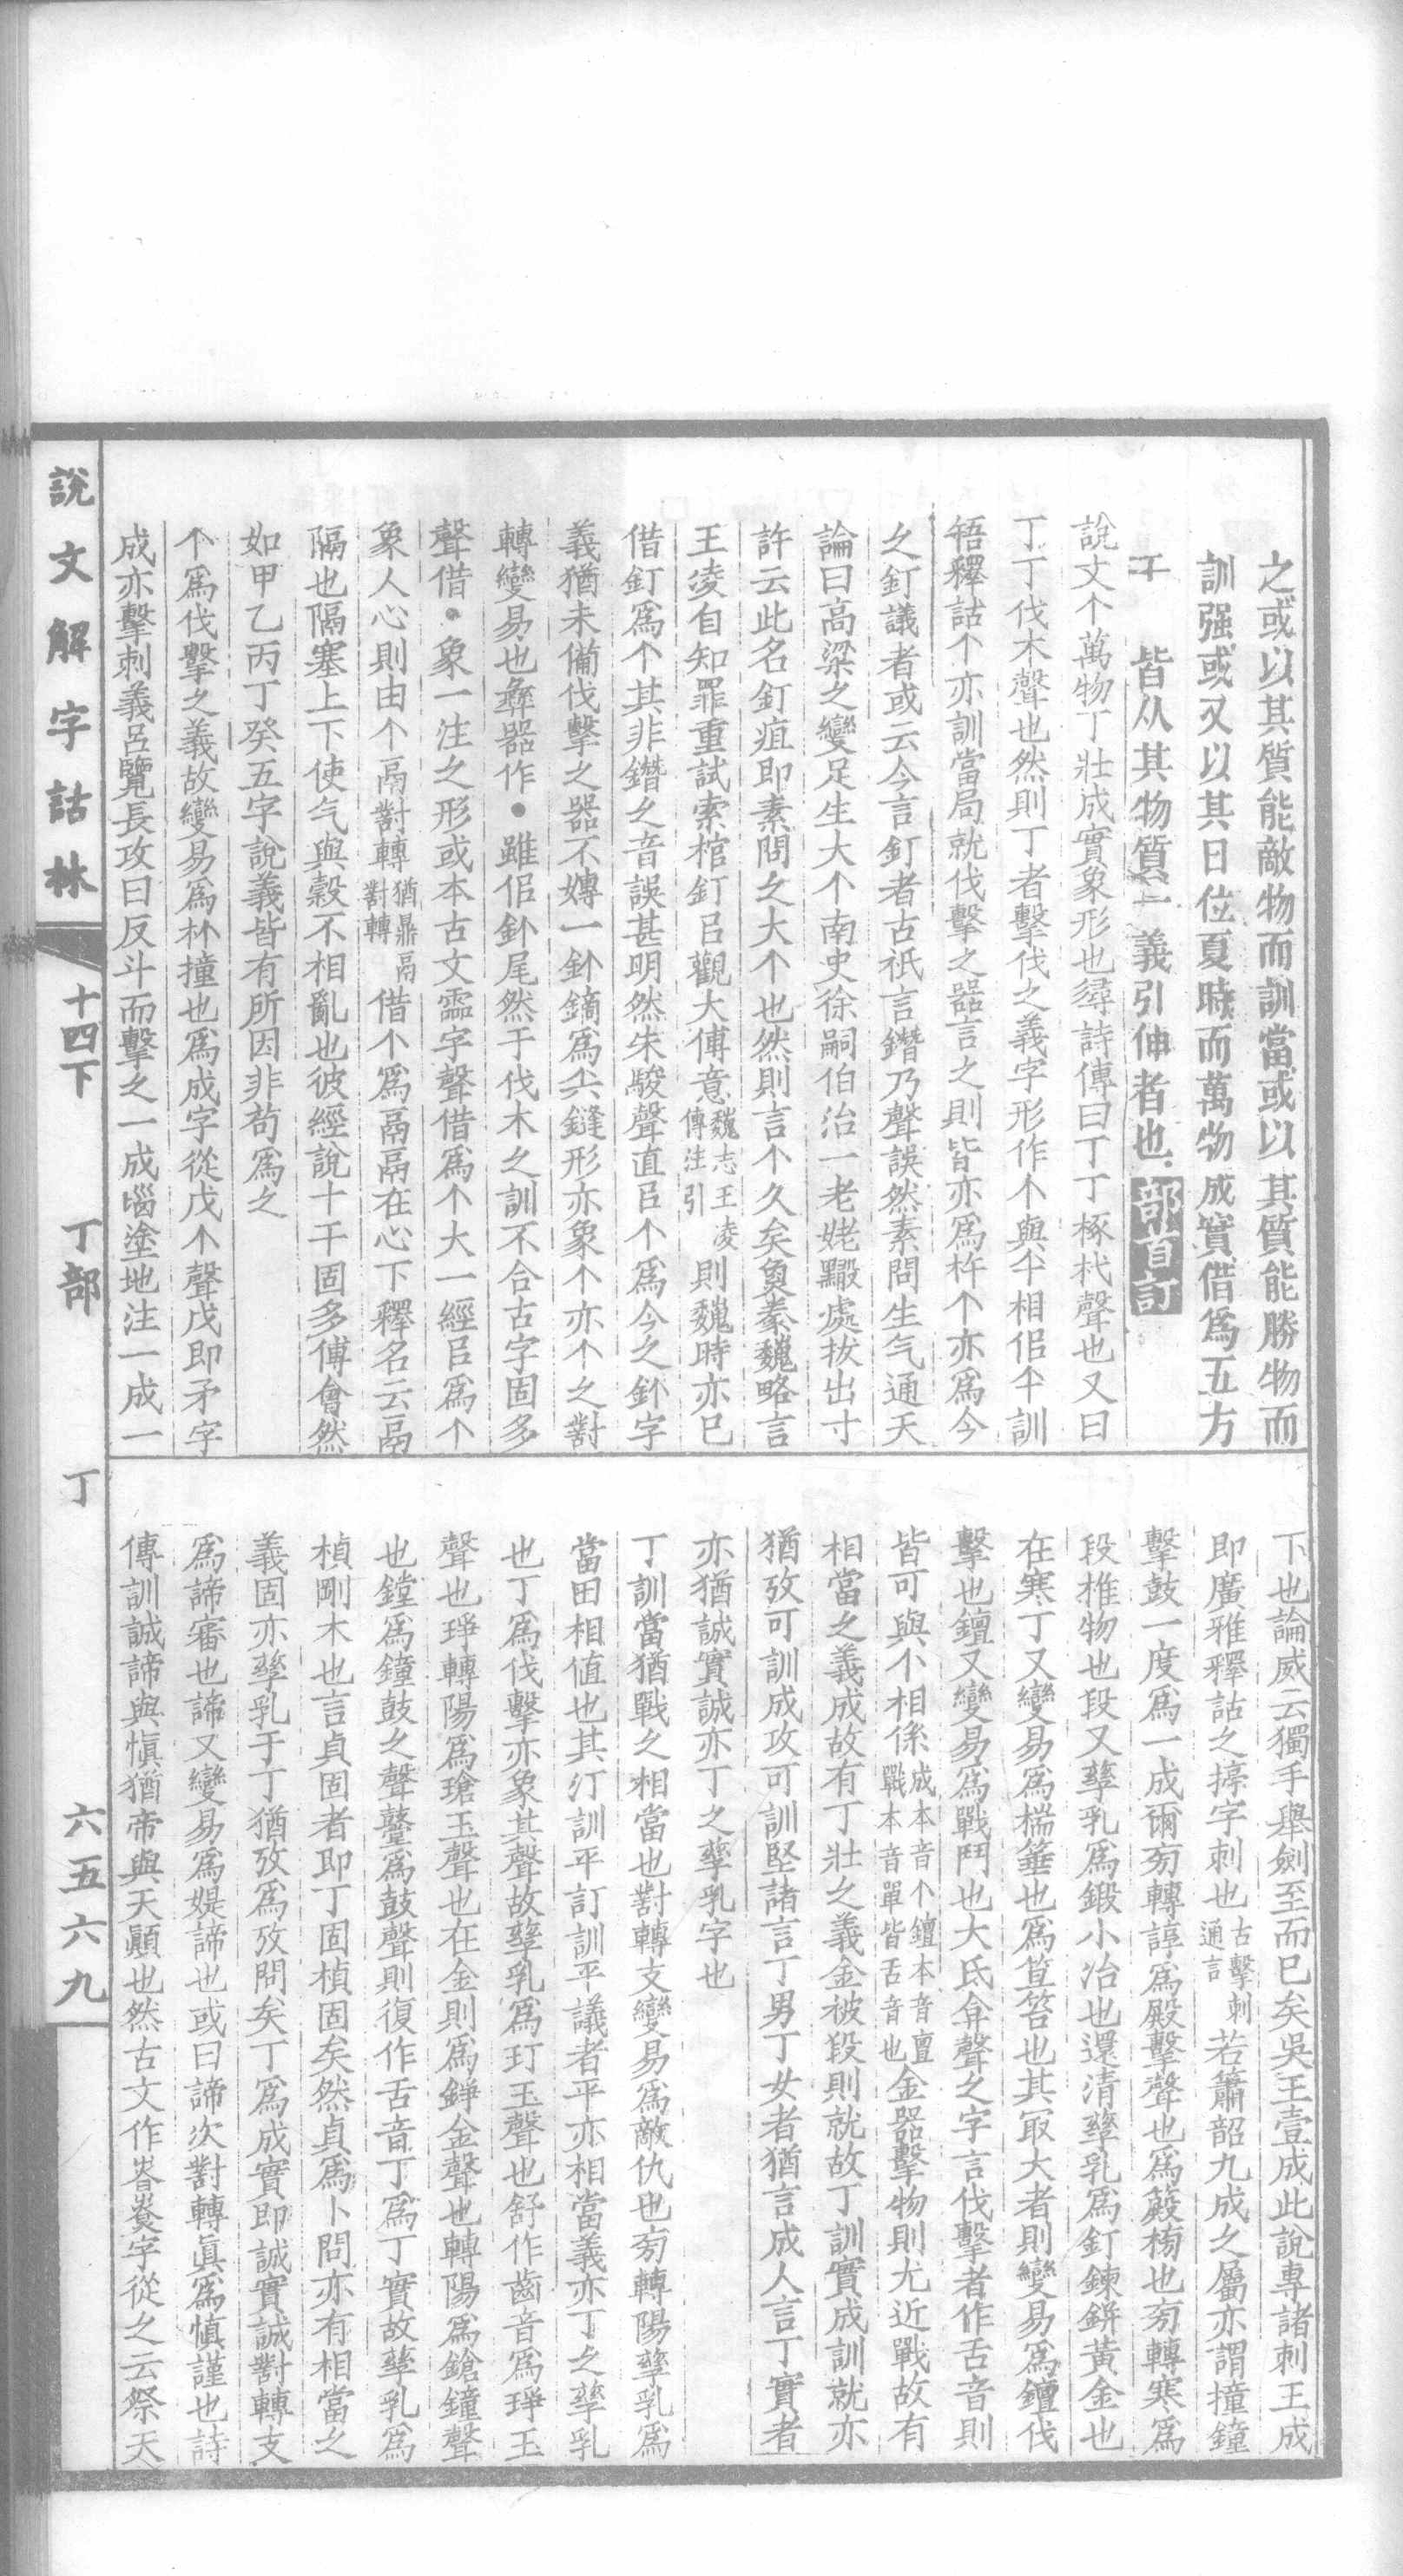 之或以其質能敵物而訓當或以其質能勝物而
訓强或又以其日位夏時而萬物成實借爲五方
干 皆从其物質一義引伸者也 部首訂
說文个萬物丁壯成實象形也尋詩傳曰丁丁椓杙聲也又曰
丁丁伐木聲也然則丁者擊伐之義字形作个與𢆉相佀𢆉訓
啎釋詁个亦訓當局就伐擊之器言之則皆亦爲杵个亦爲今
之釘議者或云今言釘者古祇言鐕乃聲誤然素問生气通天
論曰高梁之變足生大个南史徐嗣伯治一老姥黶處拔出寸
許云此名釘疽即素問之大个也然則言个久矣奐豢魏略言
王凌自知罪重試索棺釘㠯觀大傅意魏志王凌傳注引則魏時亦已
借釘爲个其非鐕之音誤甚明然朱駿聲直㠯个爲今之釙字
義猶未備伐擊之器不嫥一釙鏑爲𠆢鏠形亦象个亦个之對
轉變易也彝器作●雖佀釙尾然于伐木之訓不合古字固多
聲借●象一注之形或本古文霝字聲借爲个大一經㠯爲个
象人心則由个鬲對轉猶鼎鬲對轉借个爲鬲鬲在心下釋名云鬲
隔也隔塞上下使气與穀不相亂也彼經說十干固多傅會然
如甲乙丙丁癸五字說義皆有所因非苟爲之
个爲伐擊之義故變易爲朾撞也爲成字從戊个聲戊即矛字
成亦擊刺義呂覽長攻曰反斗而擊之一成𡿺塗地注一成一
下也論威云獨手舉劍至而巳矣吳王壹成此說專諸刺王成
即廣雅釋詁之揨字刺也古擊刺通言若簫韶九成之屬亦謂撞鐘
擊鼓一度爲一成爾㫄轉諄爲殿擊聲也爲簸榜也㫄轉寒爲
段椎物也段又孳乳爲鍛小冶也還清孳乳爲釘鍊鉼黃金也
在寒丁又變易爲椯箠也爲笪笞也其冣大者則變易爲鐔伐
擊也鐔又變易爲戰鬥也大氐弇聲之字言伐擊者作舌音則
皆可與个相係成本音个鐔本音亶戰本音單皆舌音也金器擊物則尤近戰故有
相當之義成故有丁壯之義金被段則就故丁訓實成訓就亦
猶攷可訓成攻可訓堅諸言丁男丁女者猶言成人言丁實者
亦猶誠實誠亦丁之孳乳字也
丁訓當猶戰之相當也對轉支變易爲敵仇也㫄轉陽孳乳爲
當田相值也其汀訓平訂訓平議者平亦相當義亦丁之孳乳
也丁爲伐擊亦象其聲故孳乳爲玎玉聲也舒作齒音爲琤玉
聲也琤轉陽爲瑲玉聲也在金則爲錚金聲也轉陽爲鎗鐘聲
也鏜爲鐘鼓之聲鼞爲鼓聲則復作舌音丁爲丁實故孳乳爲
楨剛木也言貞固者即丁固楨固矣然貞爲卜問亦有相當之
義固亦孳乳于丁猶攷爲攷問矣丁爲成實即誠實誠對轉支
爲諦審也諦又變易爲媞諦也或曰諦次對轉眞爲愼謹也詩
傳訓誠諦與愼猶帝與天顚也然古文作𡴘尞字從之云祭天
說文解字詁林 十四下 丁部 丁 六五六九